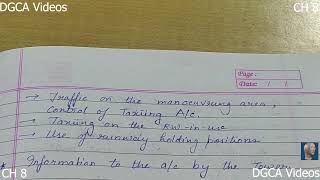 DGCA Videos
CH 8
Page:
Date: / /
→ Traffic on the manoeuvring area,
Control of Taxiing A/c.
→ Taxiing on the RW-in-use
→ Use of runway holding positions
* Information to the a/c by the Tower:
CH 8
DGCA Videos